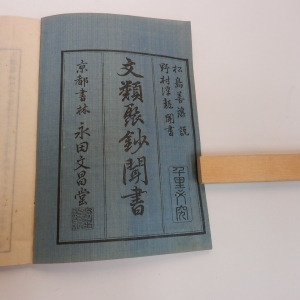 松島善海説
野村淳極聞書
文類聚鈔聞書
京都書林 永田文昌堂